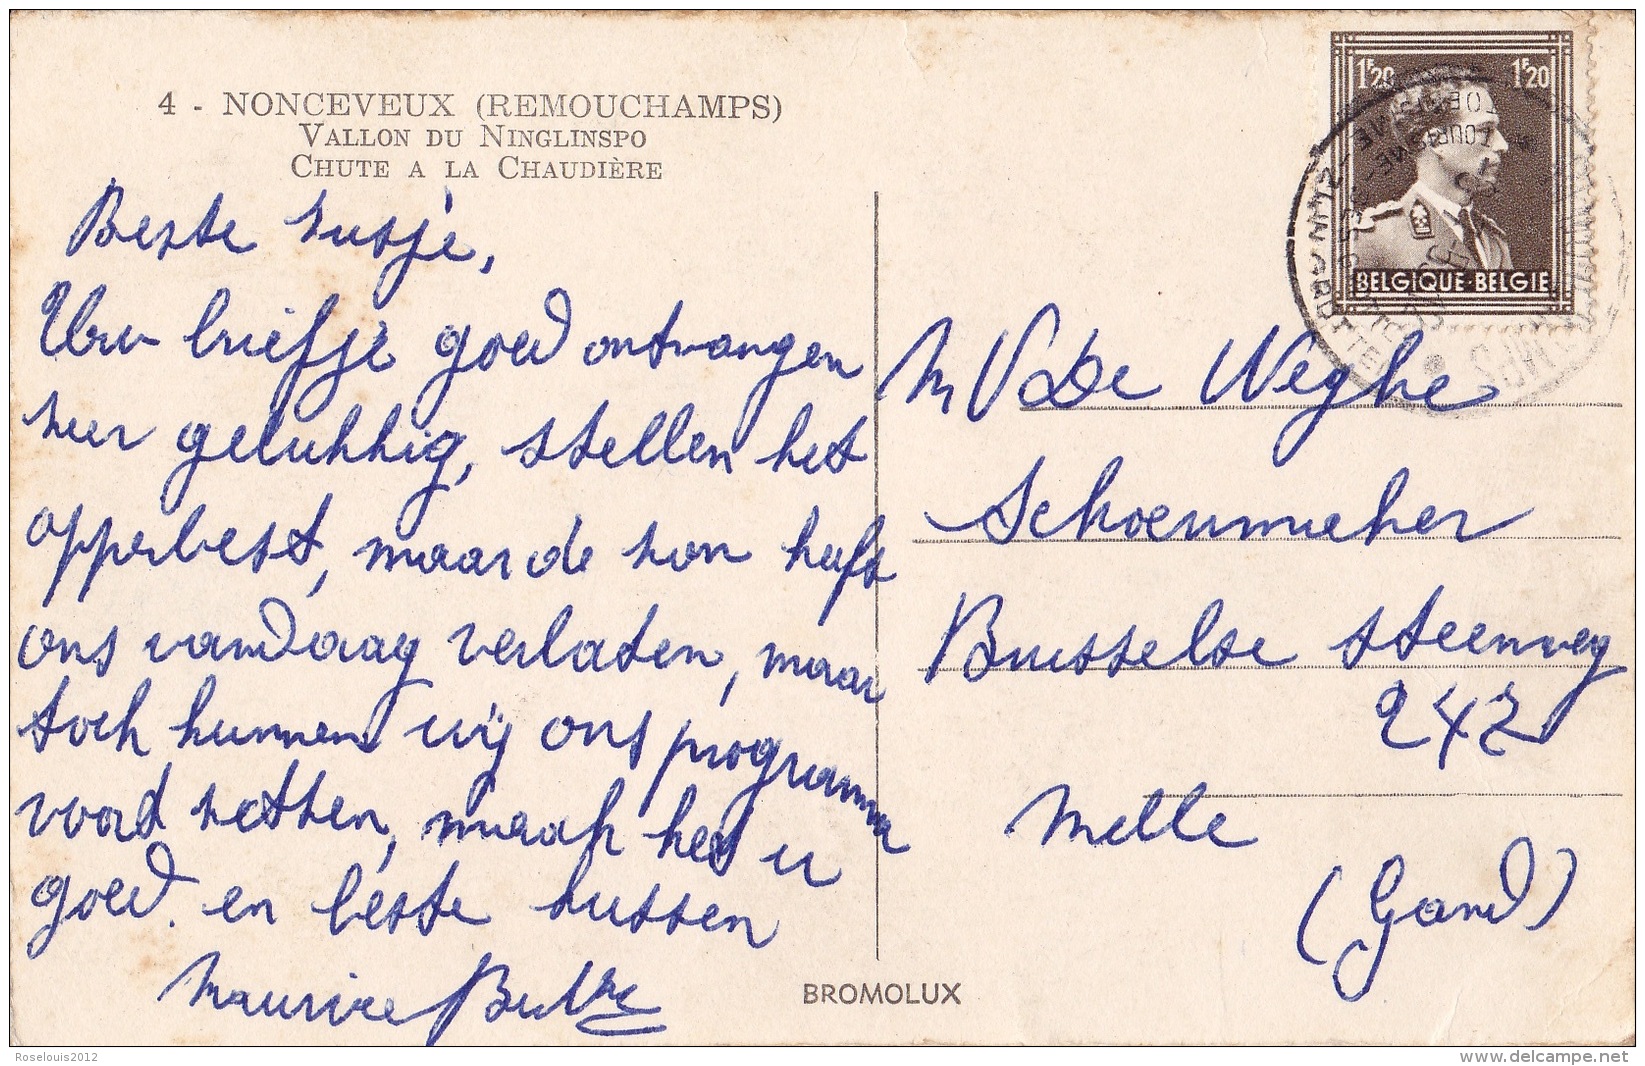 4 - NONCEVEUX (REMOUCHAMPS)
VALLON DU NINGLINSPO
CHUTE A LA CHAUDIÈRE
Beste zusje,
Uw briefje goed ontvangen
zeer gelukkig, stellen het
opperbest, maar de zon heeft
ons vandaag verlaten, maar
toch kunnen wij ons programma
voort zetten, maak het u
goed. en beste kussen
Maurice
BROMOLUX
1F20 1F20
BELGIQUE-BELGIE
M V De Weghe
Schoenmieker
Brusselse steenweg
242
Melle
(Gand)
Roselouis2012
www.delcampe.net